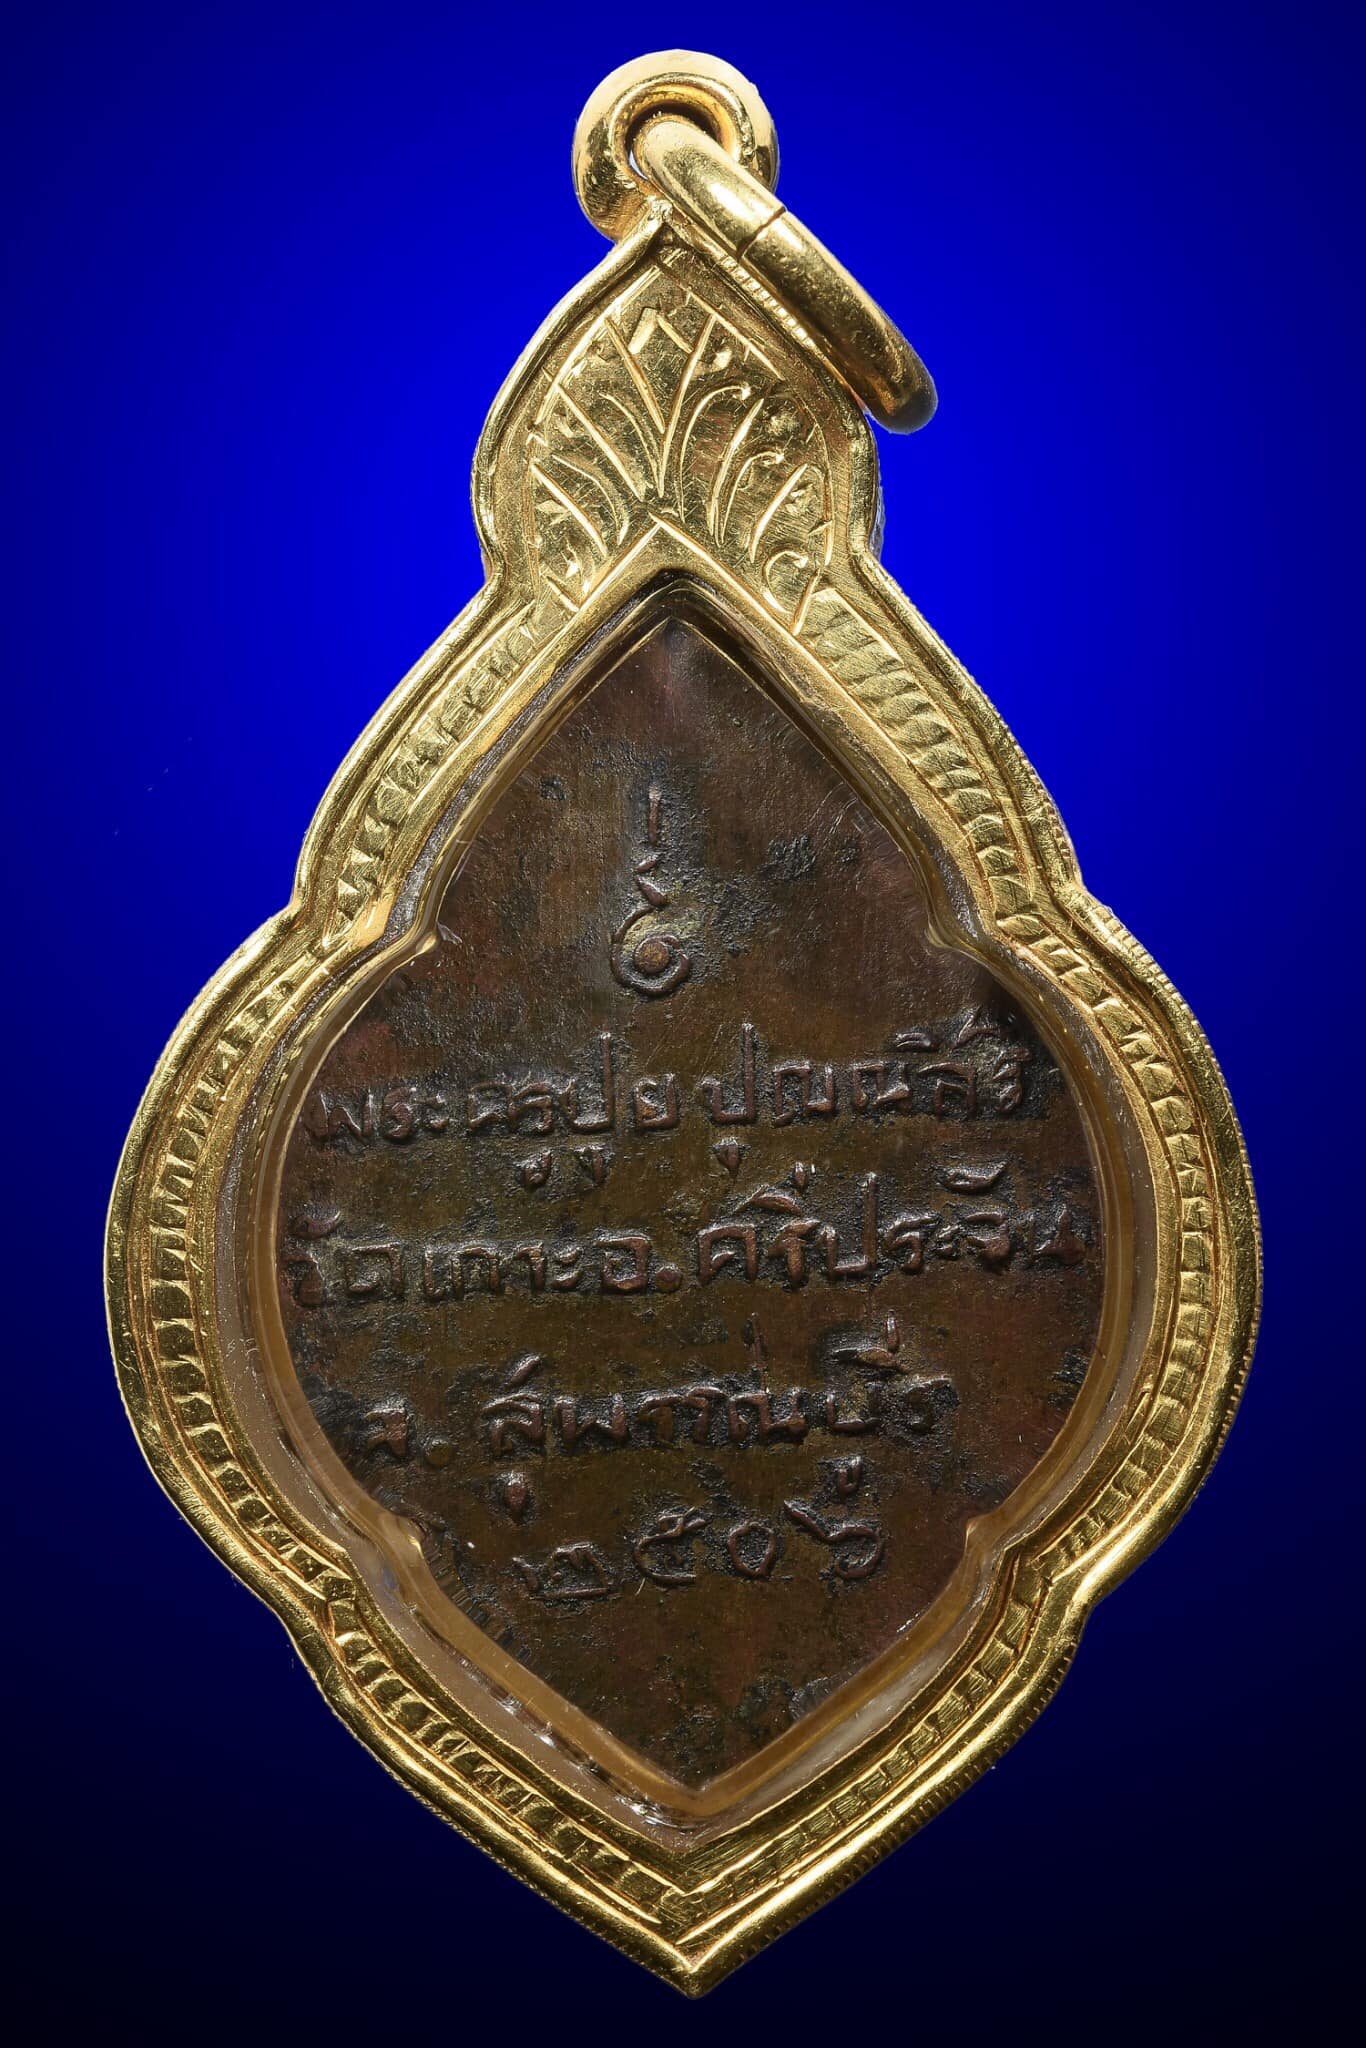 พระครูปุย ปุญฺณสิริ
วัดเกาะ อ.ศรีประจันต์
จ. สุพรรณบุรี
๒๕๐๖